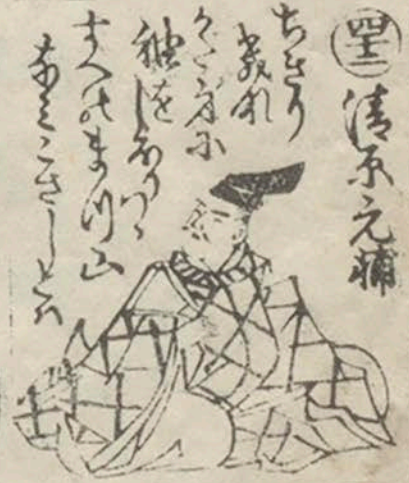 四十二
清原元輔
ちきり
きな
かたみに
袖をしほりつゝ
すへのまつ山
なみこさしとは